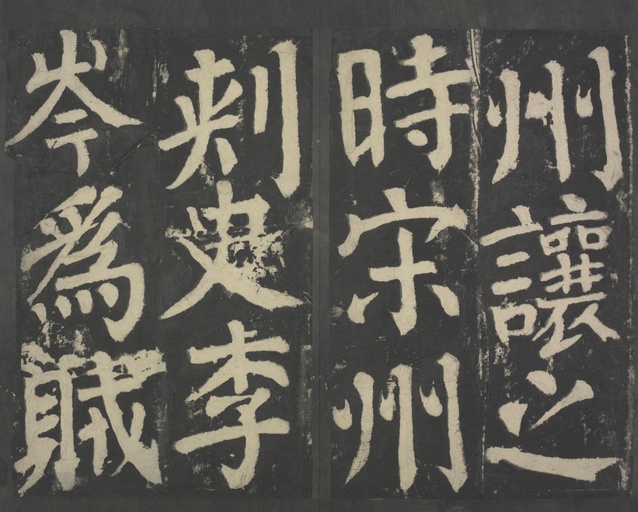 州讓之
時宋州
刺史李
岑為賊